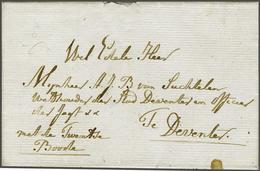 Wel Edele Heer
Mynheer A J B van Suchtelen
Wethouder der Stad Deventer en Officier
der Jagt &c
Te Deventer.
met de Twentse
Boode